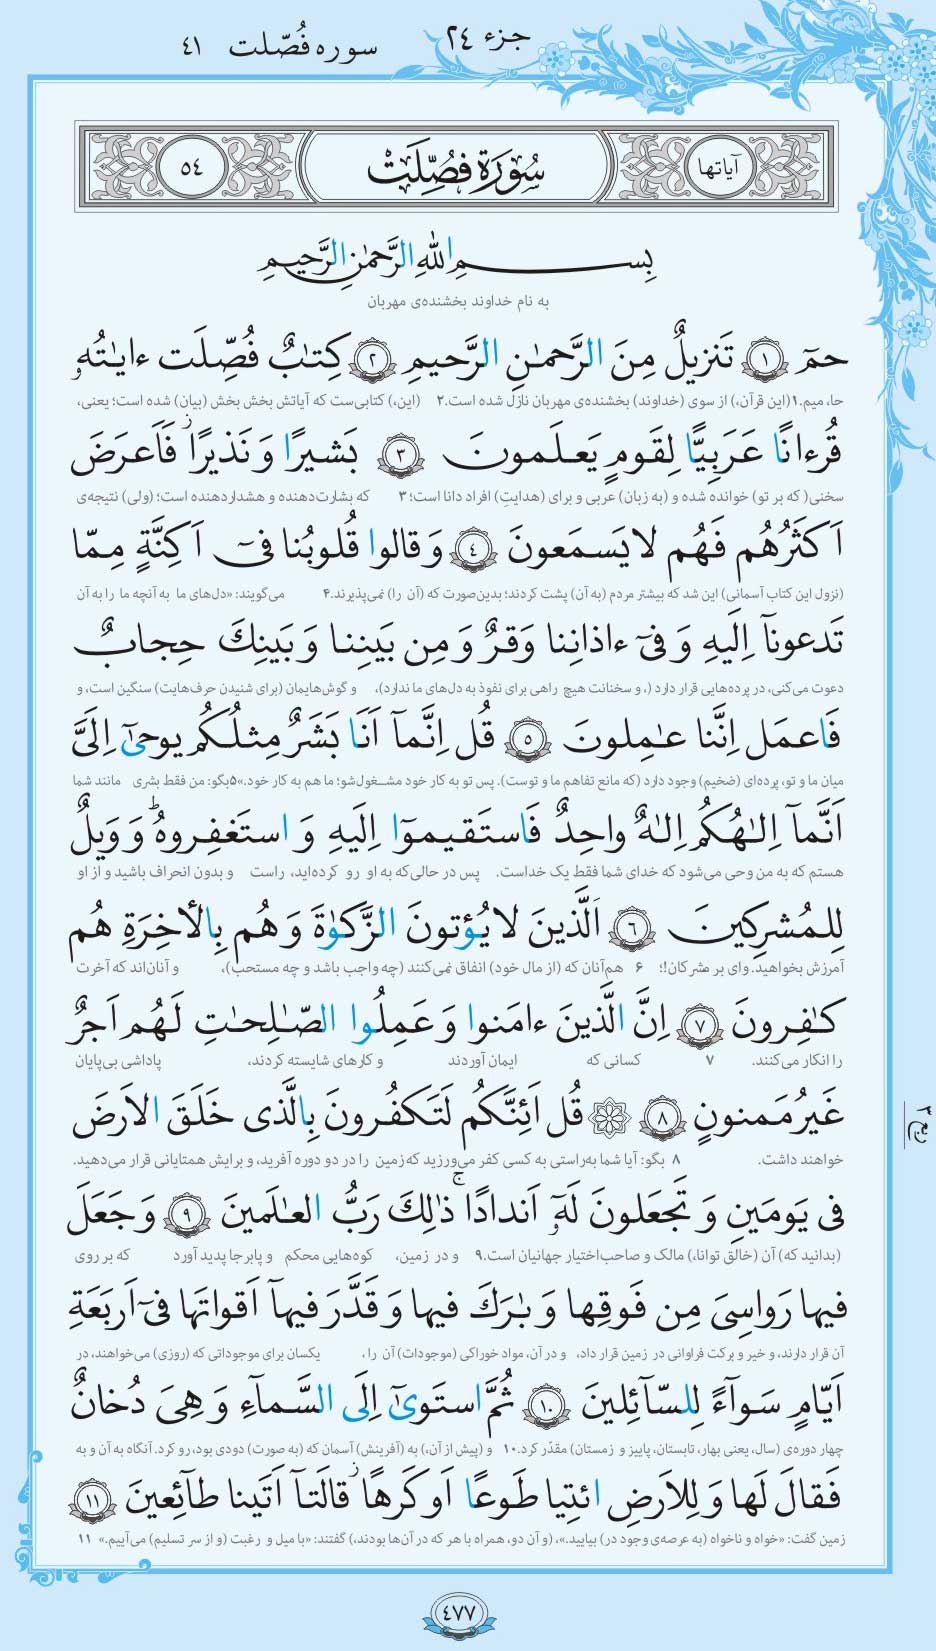 جزء ۲۴
سوره فُصّلت ۴۱
آیاتها
سُورَة فُصِّلَت
٥٤
بِسمِ اللهِ الرَّحمٰنِ الرَّحیمِ
به نام خداوند بخشنده‌ی مهربان
حمٓ ﴿١﴾ تَنزیلٌ مِنَ الرَّحمٰنِ الرَّحیمِ ﴿٢﴾ کِتٰبٌ فُصِّلَت ءایٰتُهُ
حا، میم.۱ (این قرآن،) از سوی (خداوند) بخشنده‌ی مهربان نازل شده است.۲ (این،) کتابی‌ست که آیاتش بخش بخش (بیان) شده است؛ یعنی،
قُرءانًا عَرَبِیًّا لِقَومٍ یَعلَمونَ ﴿٣﴾ بَشیرًا وَ نَذیرًا فَاَعرَضَ
سخنی( که بر تو) خوانده شده و (به زبان) عربی و برای (هدایتِ) افراد دانا است؛ ۳ که بشارت‌دهنده و هشداردهنده است؛ (ولی) نتیجه‌ی
اَکثَرُهُم فَهُم لا یَسمَعونَ ﴿٤﴾ وَ قالوا قُلوبُنا فیٓ اَکِنَّةٍ مِمّا
(نزول این کتاب آسمانی) این شد که بیشتر مردم (به آن) پشت کردند؛ بدین‌صورت که (آن را) نمی‌پذیرند.۴ می‌گویند: «دل‌های ما به آنچه ما را به آن
تَدعونآ اِلَیهِ وَ فیٓ ءاذانِنا وَقرٌ وَ مِن بَینِنا وَ بَینِكَ حِجابٌ
دعوت می‌کنی، در پرده‌هایی قرار دارد (، و سخنانت هیچ راهی برای نفوذ به دل‌های ما ندارد)، و گوش‌هایمان (برای شنیدن حرف‌هایت) سنگین است، و
فَاعمَل اِنَّنا عٰمِلونَ ﴿٥﴾ قُل اِنَّمآ اَنَا بَشَرٌ مِثلُکُم یوحیٰٓ اِلَیَّ
میان ما و تو، پرده‌ای (ضخیم) وجود دارد (که مانع تفاهم ما و توست). پس تو به کار خود مشـغول شو؛ ما هم به کار خود.»۵ بگو: من فقط بشری مانند شما
اَنَّمآ اِلٰهُکُم اِلٰهٌ واحِدٌ فَاستَقیموٓا اِلَیهِ وَ استَغفِروهُ وَ وَیلٌ
هستم که به من وحی می‌شود که خدای شما فقط یک خداست. پس در حالی‌که به او رو کرده‌اید، راست و بدون انحراف باشید و از او
لِلمُشرِکینَ ﴿٦﴾ اَلَّذینَ لا یُؤتونَ الزَّکوٰةَ وَ هُم بِالأخِرَةِ هُم
آمرزش بخواهید. وای بر مشرکان!؛ ۶ هم‌آنان که (از مال خود) انفاق نمی‌کنند (چه واجب باشد و چه مستحب)، و آنان‌اند که آخرت
کٰفِرونَ ﴿٧﴾ اِنَّ الَّذینَ ءامَنوا وَ عَمِلُوا الصّٰلِحٰتِ لَهُم اَجرٌ
را انکار می‌کنند. ۷ کسانی که ایمان آوردند و کارهای شایسته کردند، پاداشی بی‌پایان
غَیرُ مَمنونٍ ﴿٨﴾ ۞ قُل اَئِنَّکُم لَتَکفُرونَ بِالَّذی خَلَقَ الاَرضَ
ربع ۲
خواهند داشت. ۸ بگو: آیا شما به‌راستی به کسی کفر می‌ورزید که زمین را در دو دوره آفرید، و برایش همتایانی قرار می‌دهید.
فی یَومَینِ وَ تَجعَلونَ لَهُٓ اَندادًا ذٰلِكَ رَبُّ العٰلَمینَ ﴿٩﴾ وَ جَعَلَ
(بدانید که) آن (خالق توانا،) مالک و صاحب‌اختیار جهانیان است.۹ و در زمین، کوه‌هایی محکم و پابرجا پدید آورد که بر روی
فیها رَواسِیَ مِن فَوقِها وَ بٰرَكَ فیها وَ قَدَّرَ فیهآ اَقواتَها فیٓ اَربَعَةِ
آن قرار دارند، و خیر و برکت فراوانی در زمین قرار داد، و در آن، مواد خوراکی (موجودات) آن را، یکسان برای موجوداتی که (روزی) می‌خواهند، در
اَیّامٍ سَوآءً لِلسّآئِلینَ ﴿١٠﴾ ثُمَّ استَویٰٓ اِلَی السَّمآءِ وَ هِیَ دُخانٌ
چهار دوره‌ی (سال، یعنی بهار، تابستان، پاییز و زمستان) مقدّر کرد.۱۰ و (پیش از آن،) به (آفرینش) آسمان که (به صورت) دودی بود، رو کرد. آنگاه به آن و به
فَقالَ لَها وَ لِلاَرضِ ائتِیا طَوعًا اَو کَرهًا قالَتآ اَتَینا طآئِعینَ ﴿١١﴾
زمین گفت: «خواه و ناخواه (به عرصه‌ی وجود در) بیایید.»، (و آن دو، همراه با هر که در آن‌ها بودند،) گفتند: «با میل و رغبت (و از سر تسلیم) می‌آییم.» ۱۱
۴۷۷